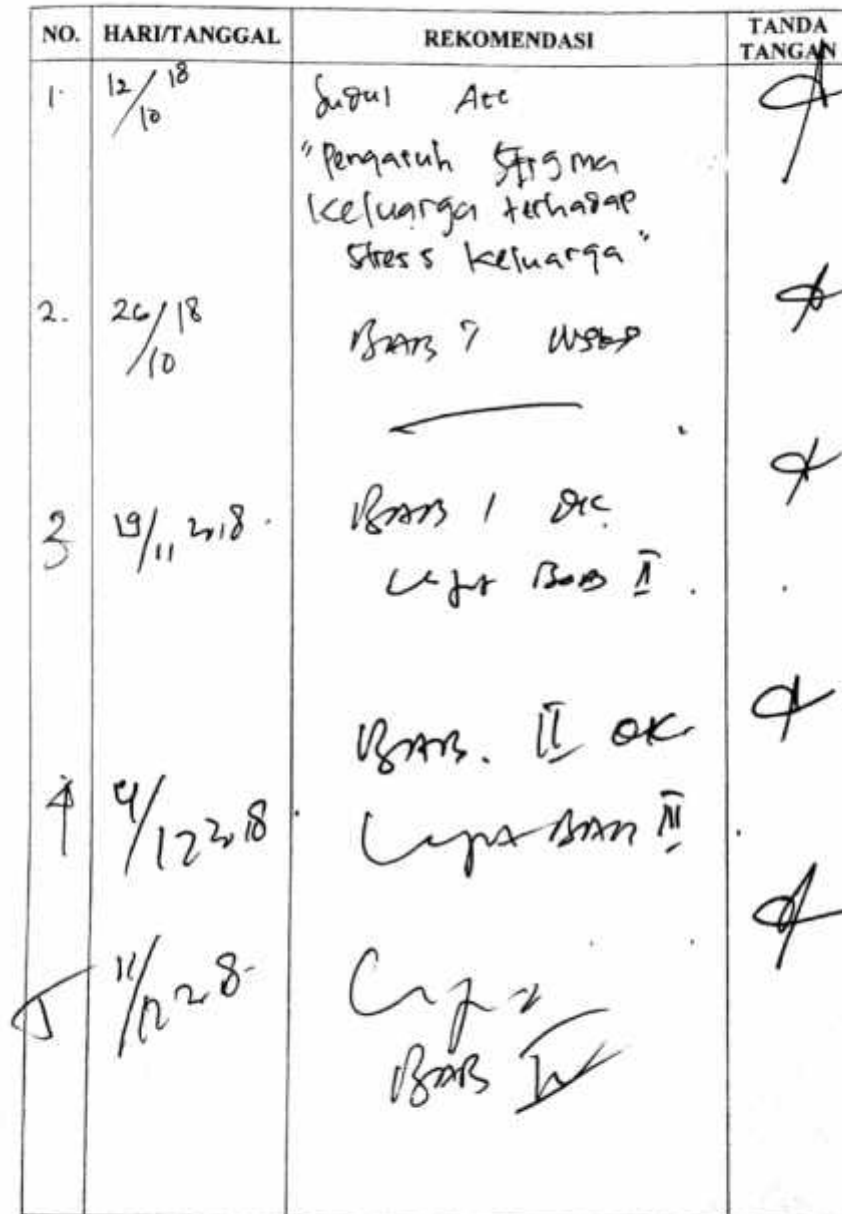 NO. HARI/TANGGAL REKOMENDASI TANDA TANGAN
1. 12/10 18 Judul Acc
"Pengaruh Stigma
Keluarga terhadap
Stress Keluarga"
2. 26/10 18 BAB
3 19/11 2018. BAB 1 OK.
Lanjut BAB II.
BAB. II OK
4 4/12 2018 Lanjut BAB III
5 11/12 2018 Lanjut
BAB IV